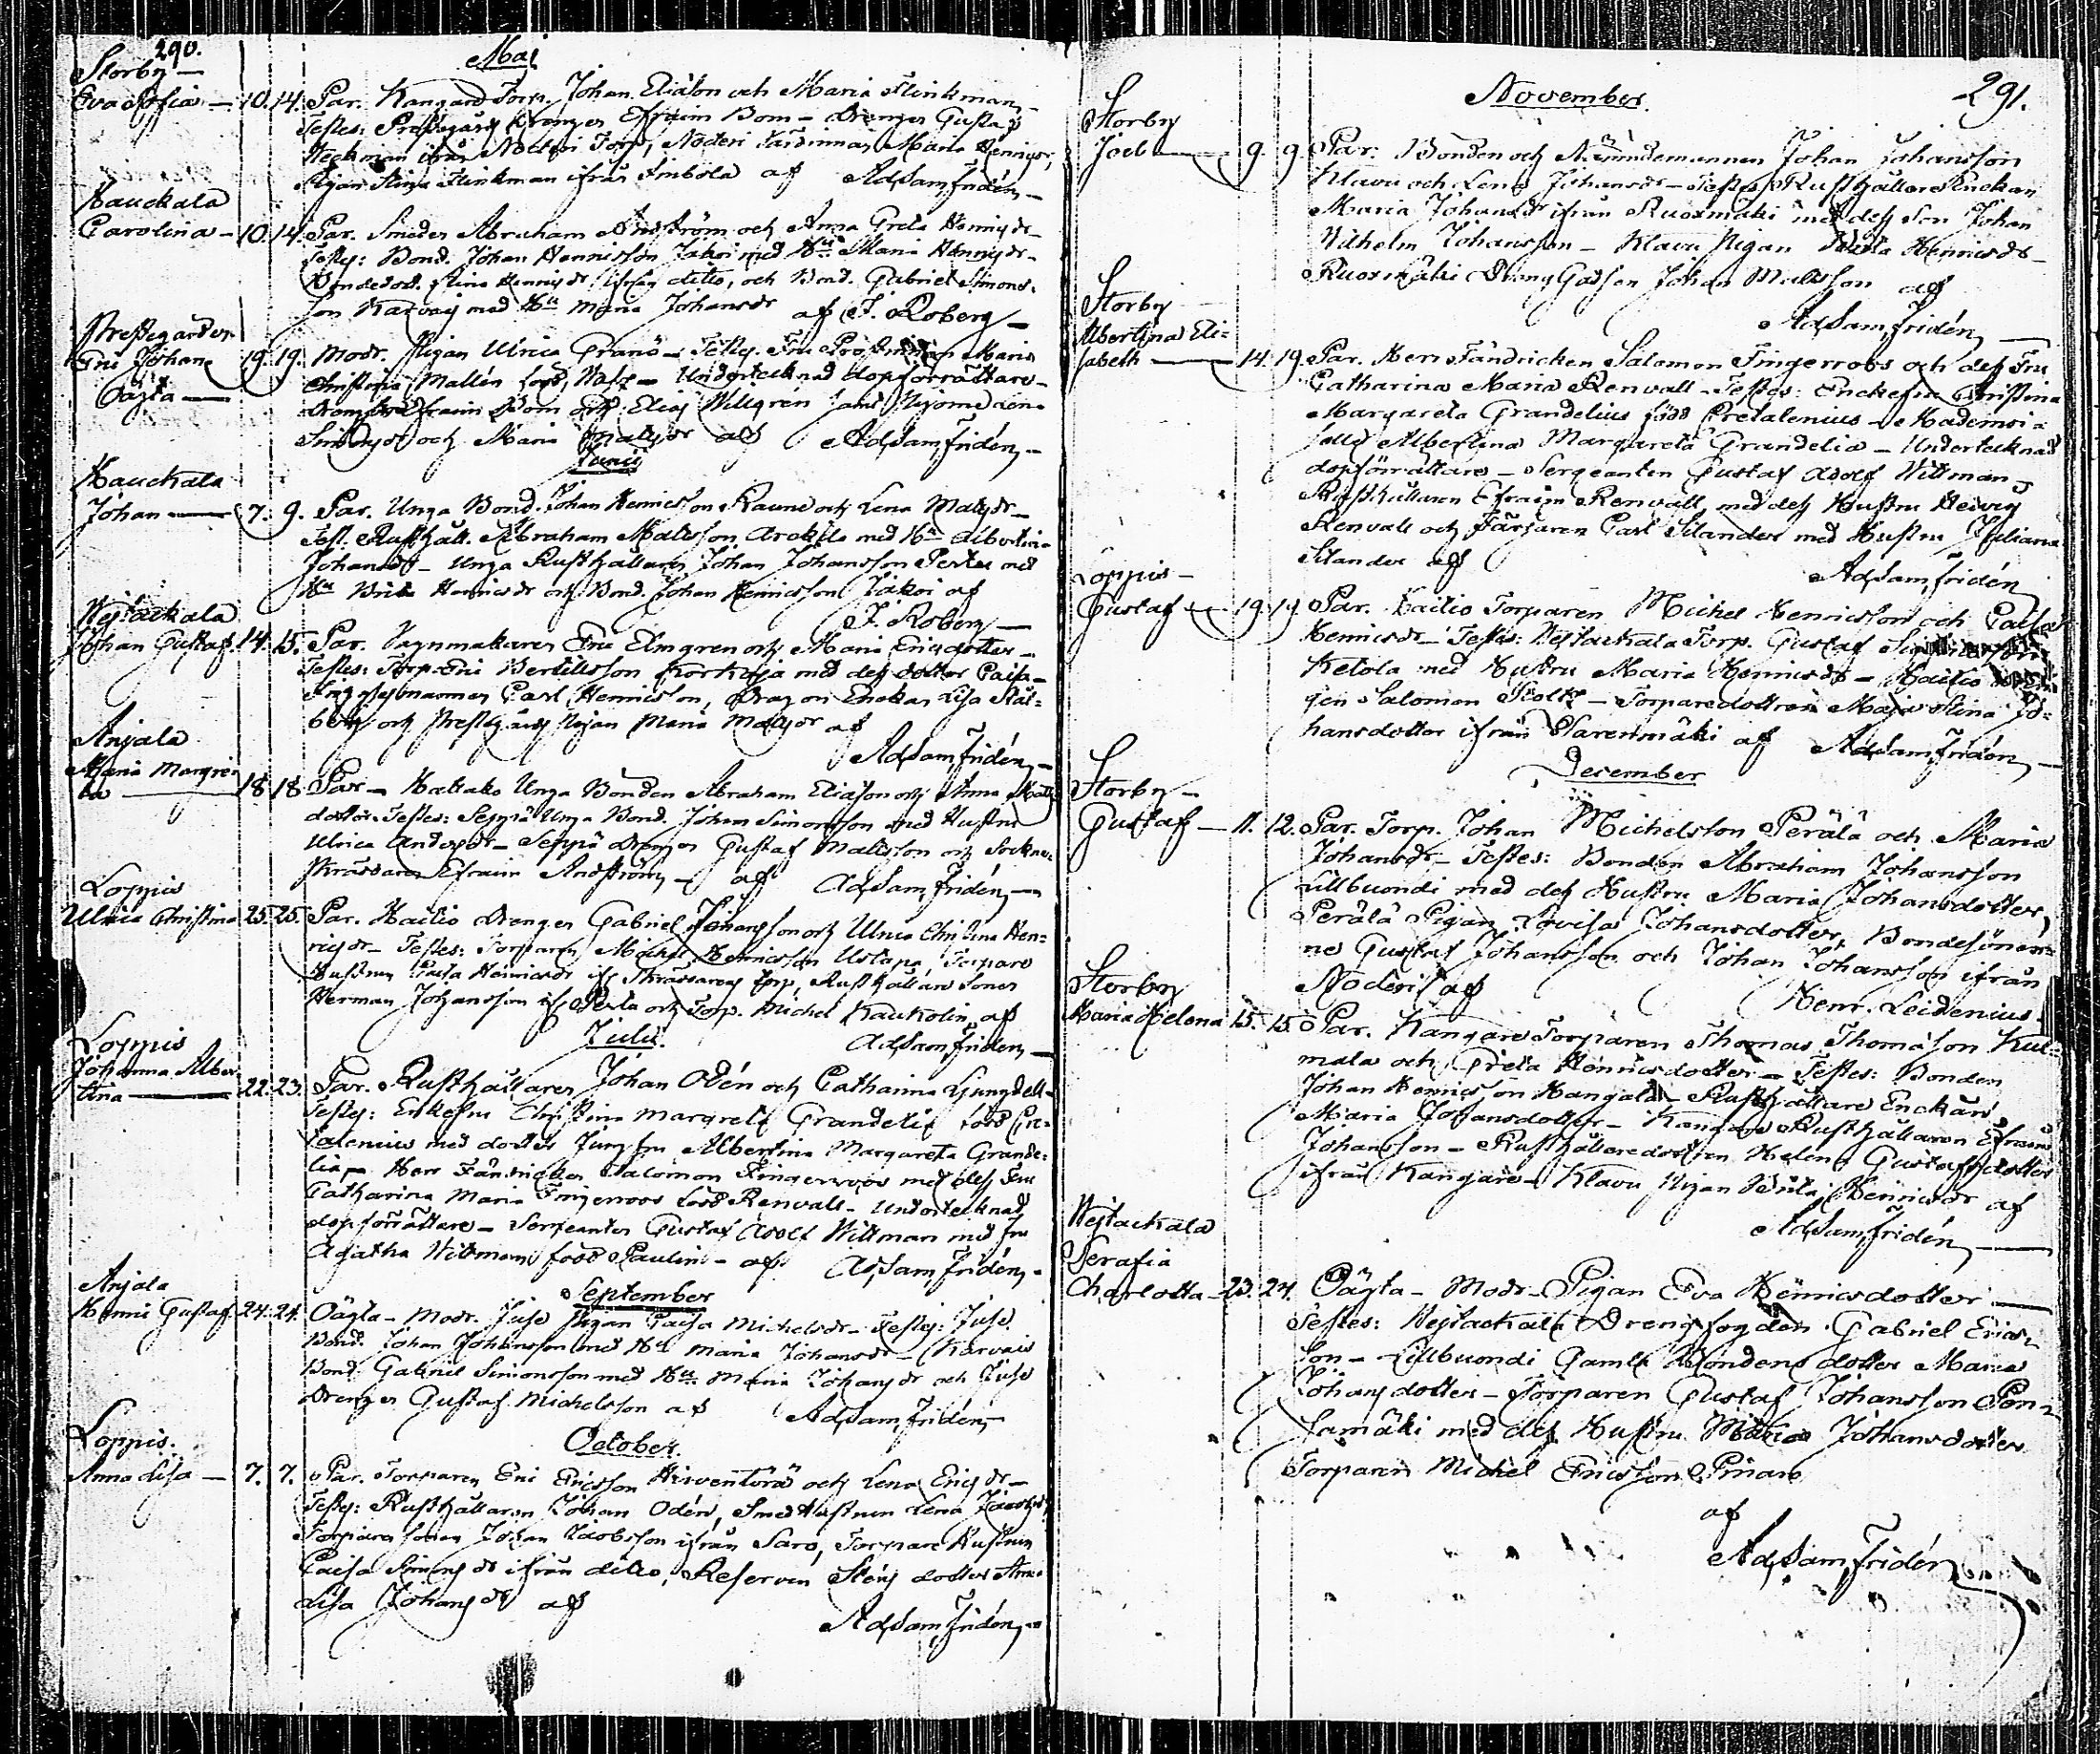 290.
Maj
Storby —
Eva Sofia — 10. 14. Par. Kangare Torp. Johan Eliason och Maria Flinkman,
Testes: Prestgårds Drengen Efraim Bom — Drengen Gustaf
Heckman ifrån Noderi Torp, Noderi Maria
Pigan Stina Flinkman ifrån Finbola af AdSamFridén —
Hauckala
Carolina — 10. 14. Par. Smeden Abraham Andström och Anna Greta Henrigdr —
Testes: Bond. Johan Henricsson Jakoi med Hu Maria Henrigdr —
Bondedod. Stina Henrigdr ifrån ditto, och Bond. Gabriel Simons-
son Karvais med Hu Maria Johansdr af J. Roberg —
Prestegården
Eric Johan 19. 19. Modr. Pigan Ulrica Granö — Testes. Fru Prostinnan Maria
Oägta — Christina Mallén född, Undertecknad dopförrättare —
Drengarne Efraim Bom och Elias Willgren samt
Simonsdr och Maria Matsdr af AdSamFridén —
Junii
Hauckala
Johan — 7. 9. Par. Unga Bond. Johan Henricsson Rauno och Lena Matsdr —
Test. Rusthåll. Abraham Mattsson Arokylä med Hu Albertina
Johansdr — Unga Rusthållaren Johan Johansson Perta med
Hu Brita Henricsdr och Bond. Johan Henricsson Jakoi af
J. Roberg —
Weslackala
Johan Gustaf. 14. 15. Par. Vagnmakaren Eric Elmgren och Maria Ericsdotter —
Testes: Torp. Eric Bertillsson Korkoja med dess dotter Caisa —
Carl Henricsson, Dragon Enckan Lisa Stål-
berg och Prestgårds Pigan Maria Matsdr af
AdSamFridén —
Anjala
Maria Margre-
ta — 18. 18. Par — Hakako Unga Bonden Abraham Eliason och Anna Matts
dotter. Testes: Seppä Unga Bond. Johan Simonsson med Hustru
Ulrica Andersdr — Seppä Drengen Gustaf Mattsson och Sockne-
Skräddaren Efraim Andström — af AdSamFridén —
Loppis
Ulrica Christina 25. 25. Par. Kailio Drengen Gabriel Johansson och Ulrica Christina Hen-
rigsdr — Testes: Torparen Michel Henricsson Ustapa Torpare
Hustrun Caisa Henricsdr ifr. Skräddarens Torp, Rusthållare Sonen
Herman Johansson ifr. Perta och Torp. Michel Kaukolin af
AdSamFridén —
Julii.
Loppis
Johanna Alber-
tina — 22. 23. Par. Rusthållaren Johan Odén och Catharina Ljungdell —
Testes: Enkefru Christina Margreta Grandelia född Cre-
talenius med dotter Jungfru Albertina Margareta Grande-
lia — Herr Fändricken Salomon Fingerroos med dess Fru
Catharina Maria Fingerroos född Renvall — Undertecknad
dopförrättare — Sergeanten Gustaf Adolf Wittman med Fru
Agatha Wittman född Paulin — af AdSamFridén —
September
Anjala
Henric Gustaf. 24. 24. Oägta — Modr. Juse Pigan Caisa Michelsdr — Testes: Juse
Bond. Johan Johansson med Hu Maria Johansdr — Karvais
Bond. Gabriel Simonsson med Hu Maria Johansdr och Juse
Drengen Gustaf Michelsson af AdSamFridén —
October.
Loppis.
Anna Lisa — 7. 7. Par. Torparen Eric Ericsson Hirventörä och Lena Ericsdr —
Testes: Rusthållaren Johan Odén, Smed Hustrun Lena
Torpare sonen Johan Jacobsson ifrån Saro, Torpare Hustrun
Caisa Simonsdr ifrån ditto, Reserven Stens dotter Anna
Lisa Johansdr af
AdSamFridén —
291.
November.
Storby
Joel — 9. 9. Par. Bonden och Nämndemannen Johan Johansson
Klavu och Lena Johansdr — Testes: Rusthållare Enckan
Maria Johansdr ifrån Ruosmäki med dess Son Johan
Wilhelm Johansson — Klavu Pigan Brita Henricsdr —
Ruosmäki Dreng Gossen Johan Mattsson af
AdSamFridén —
Storby
Albertina Eli-
sabeth — 14. 19. Par. Herr Fändricken Salomon Fingerroos och dess Fru
Catharina Maria Renvall — Testes: Enckefru Christina
Margareta Grandelius född Cretalenius — Mademoi-
selle Albertina Margareta Grandelia — Undertecknad
dopförrättare — Sergeanten Gustaf Adolf Wittman,
Rusthållaren Efraim Renvall med dess Hustru Hedvig
Renvall och Färgaren Carl Silander med Hustru Juliana
Silander af
AdSamFridén
Loppis —
Gustaf — 19. 19. Par. Kailio Torparen Michel Henricsson och Caisa
Henricsdr — Testes: Weslackala Torp. Gustaf
Ketola med Hustru Maria Henricsdr — Kailio
gen Salomon Stolt — Torparedottren Maja Stina Jo-
hansdotter ifrån Varenmäki af AdSamFridén —
December
Storby —
Gustaf — 11. 12. Par. Torp. Johan Michelsson Perälä och Maria
Johansdr — Testes: Bonden Abraham Johansson
Lillbuondi med dess Hustru Maria Johansdotter,
Perälä Pigan Lovisa Johansdotter, Bondesöner-
ne Gustaf Johansson och Johan Johansson ifrån
Noderis af
Henr. Leidenius.
Storby
Maria Helena 15. 15. Par. Kangare Torparen Thomas Thomason Kul-
mala och Greta Henricsdotter — Testes: Bonden
Johan Henricsson Hangala — Rusthållare Enckan
Maria Johansdotter — Kangare Rusthållaren Efraim
Johansson — Rusthållaredottren Helena Gustafsdotter
ifrån Kangare — Klavu Pigan Brita Henricsdr af
AdSamFridén —
Weslackala
Serafia
Charlotta — 23. 24. Oägta — Modr — Pigan Eva Henricsdotter —
Testes: Weslackala Drengsfogden Gabriel Erics-
son — Lillbuondi Gamla Bondens dotter Maria
Johansdotter — Torparen Gustaf Johansson Pon-
samäki med dess Hustru Maria Johansdotter
Torparen Michel Ericsson Prinare
af
AdSamFridén